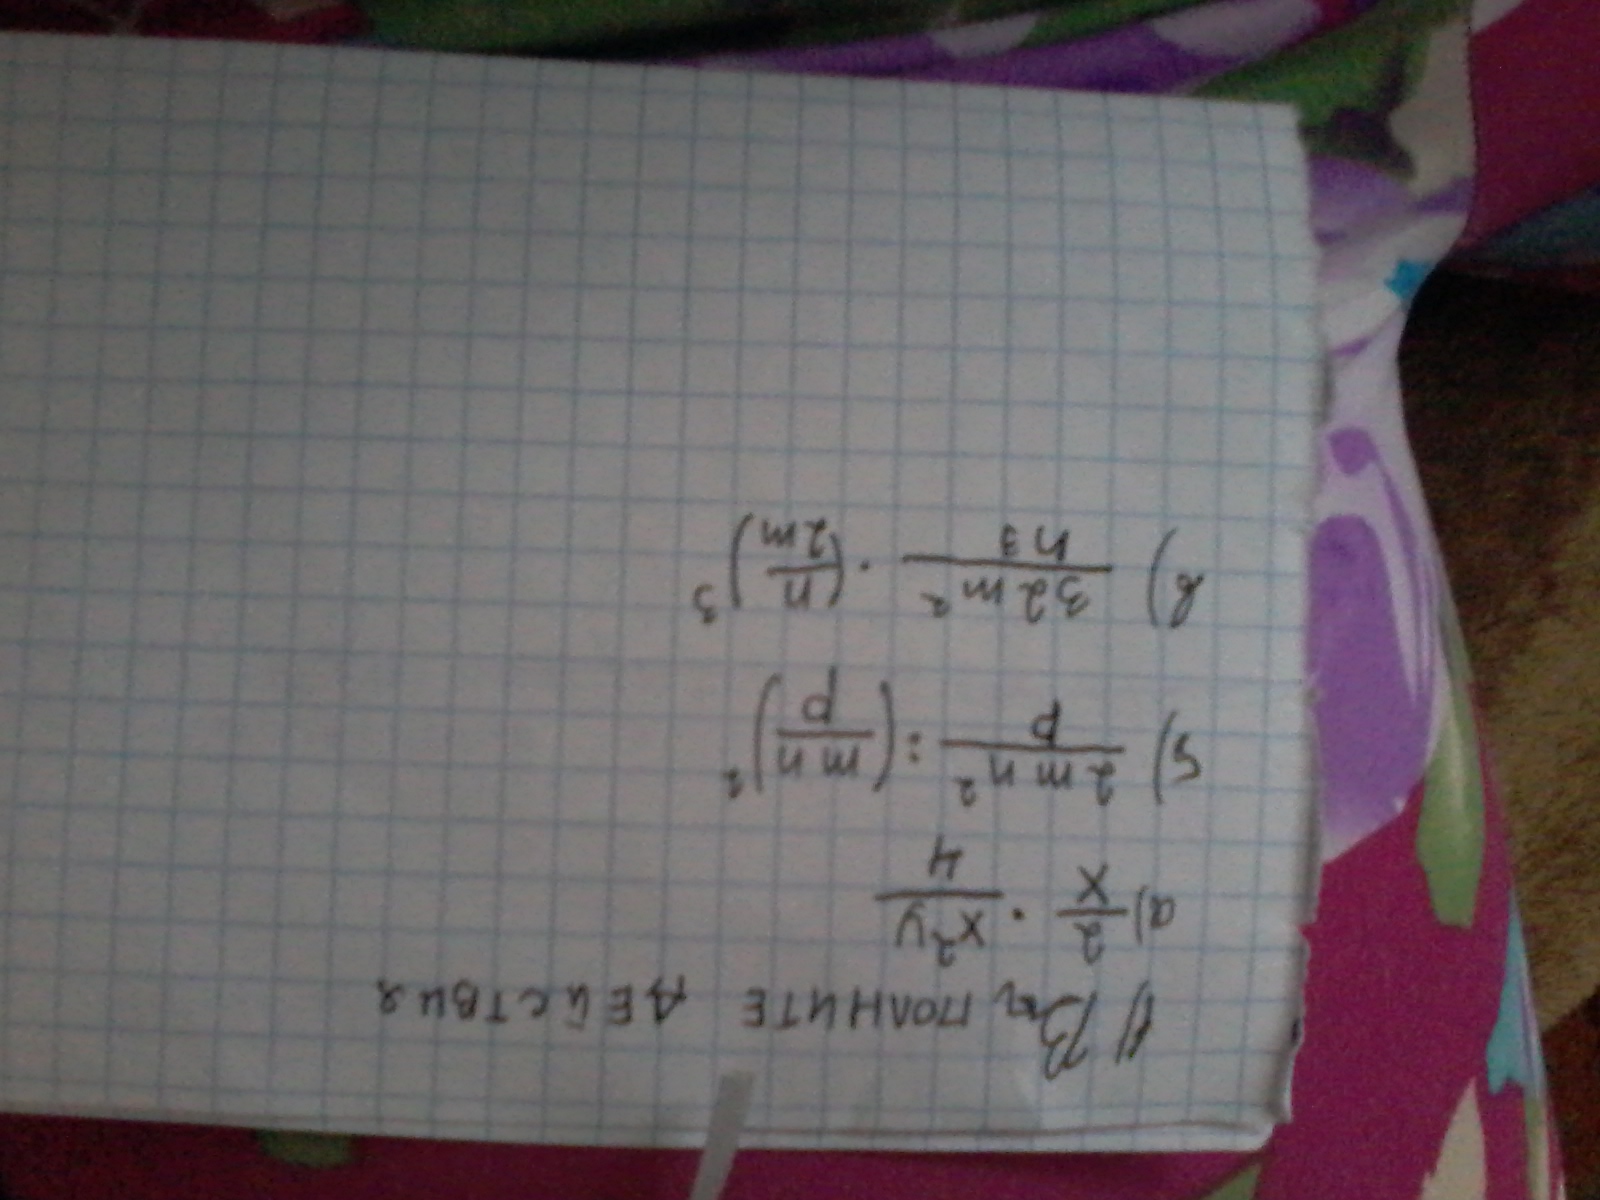 1) Выполните действия
а) 2/x · x²y/4
б) 2mn²/p : (mn/p)²
в) 32m²/n³ · (n/2m)³